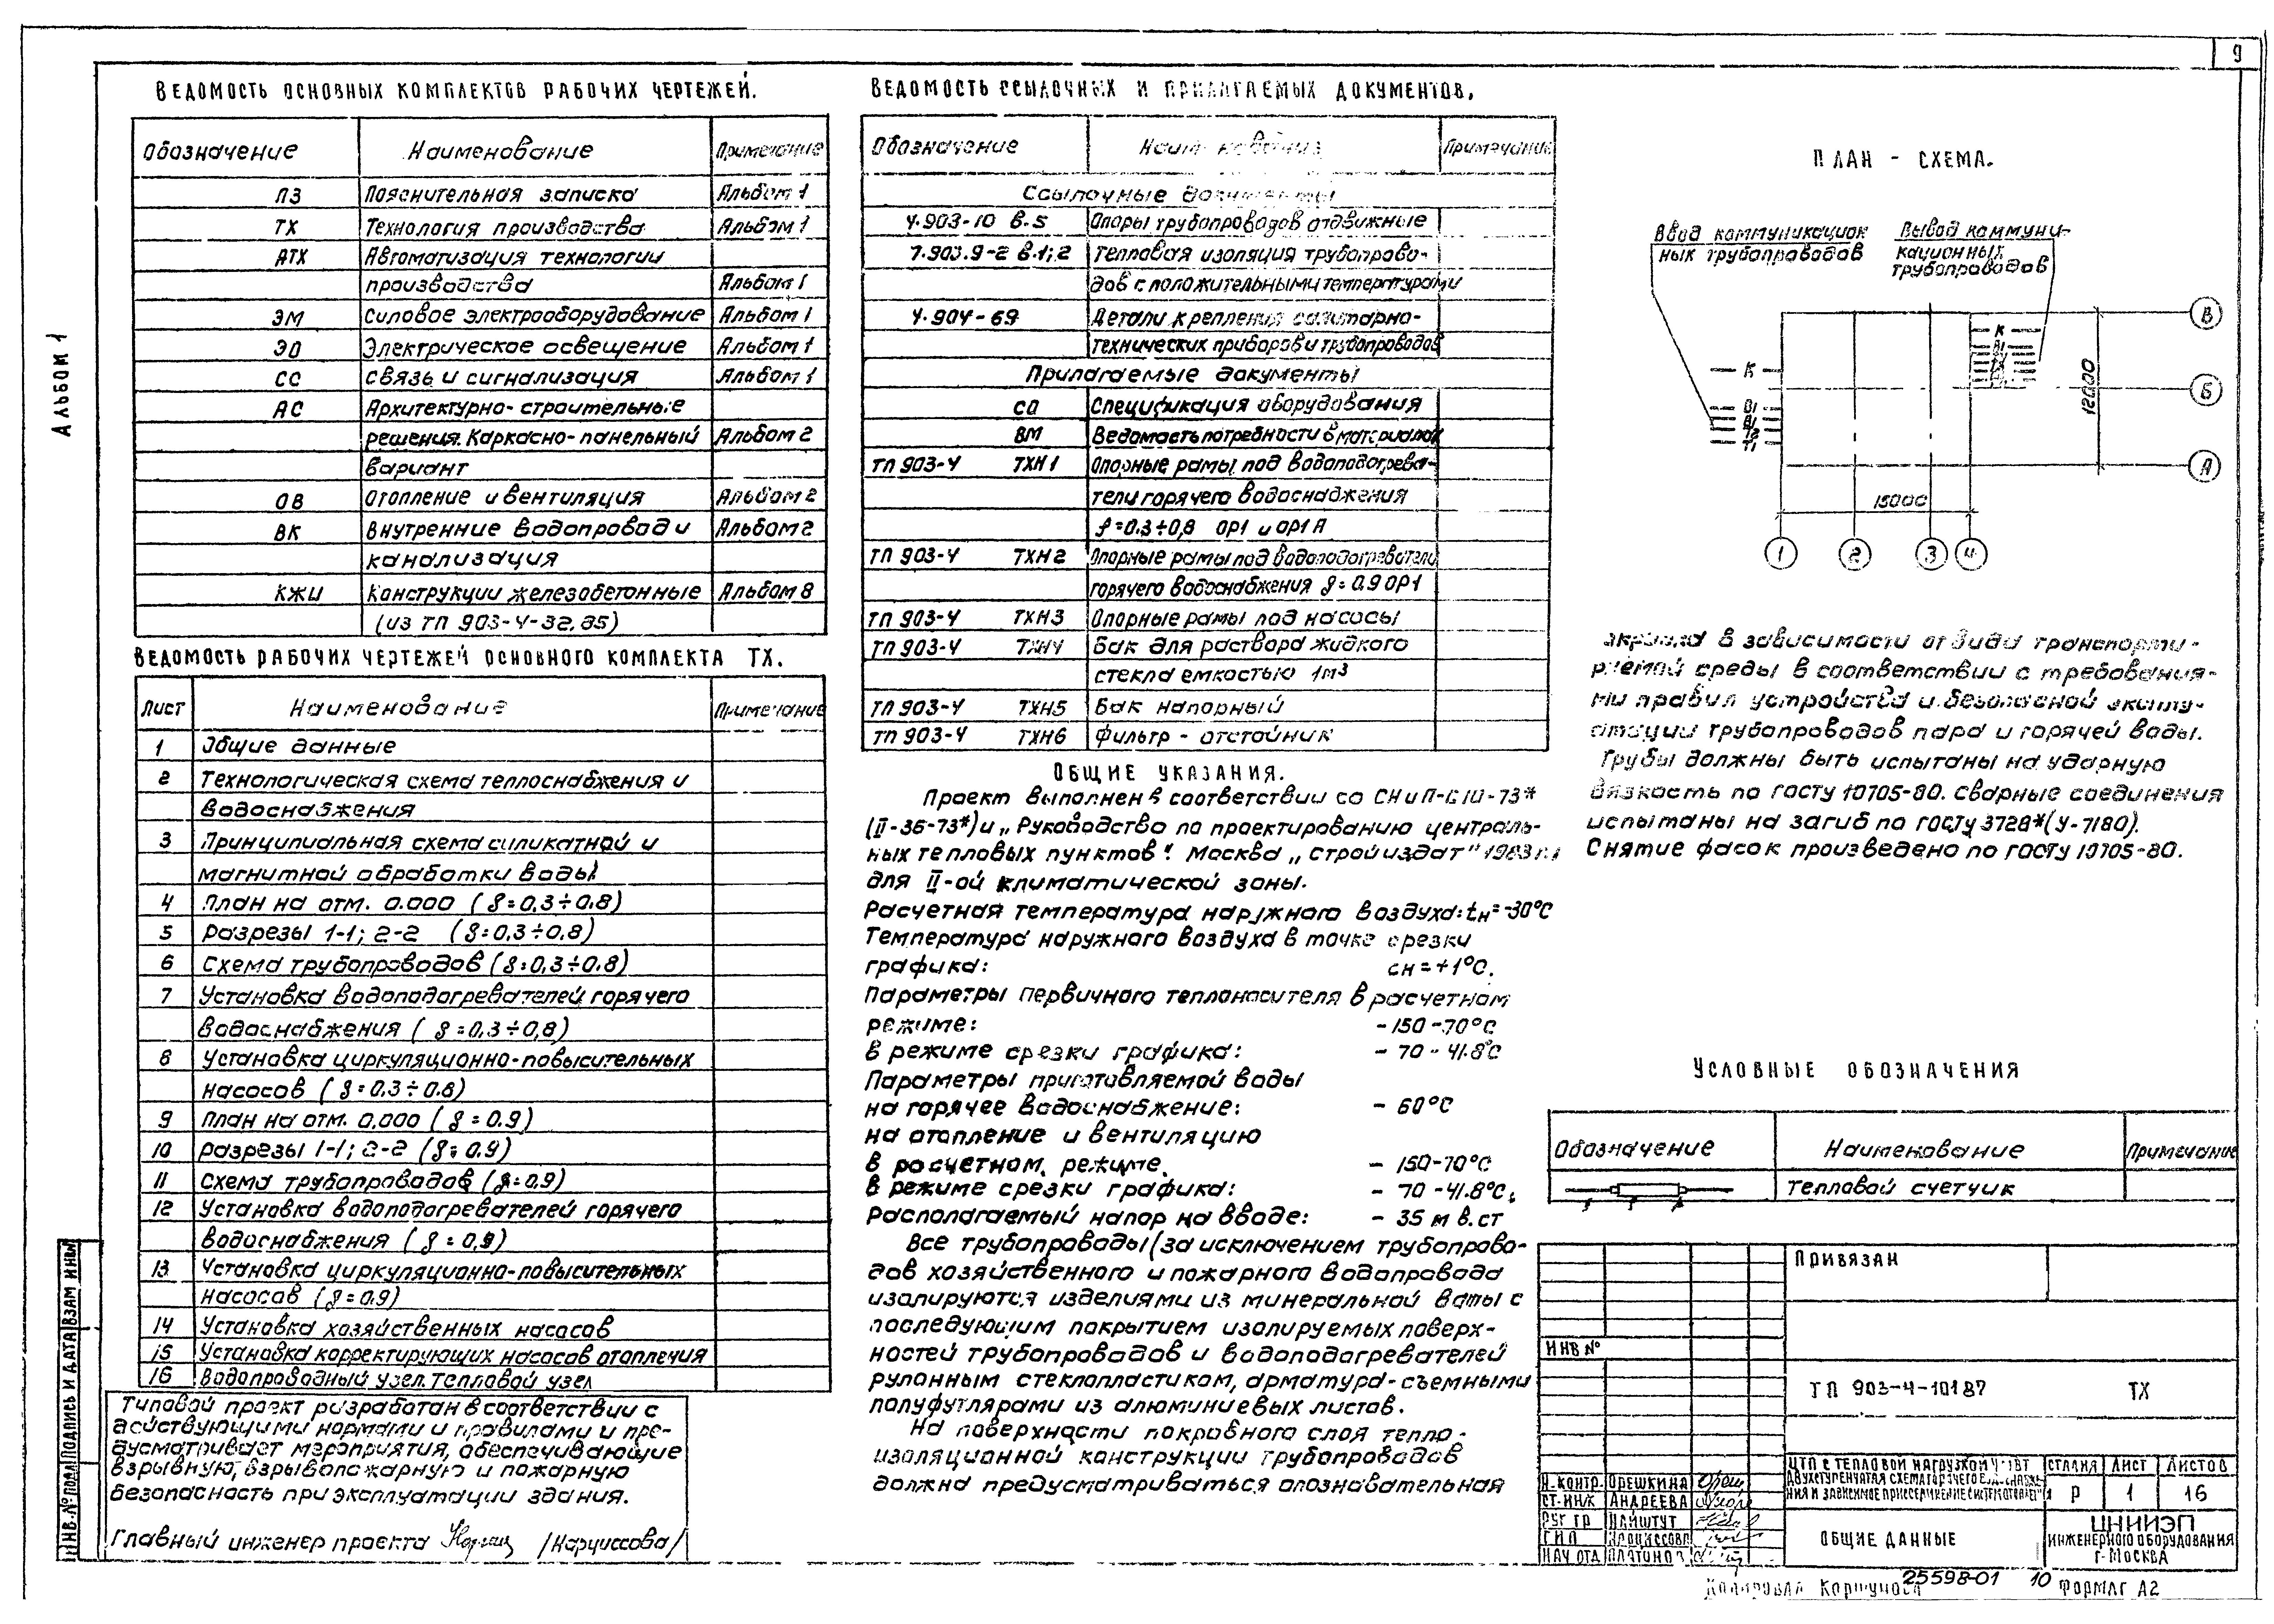 9
Альбом 1
Ведомость основных комплектов рабочих чертежей.
Обозначение Наименование Примечание
ПЗ Пояснительная записка Альбом 1
ТХ Технология производства Альбом 1
АТХ Автоматизация технологии
производства Альбом 1
ЭМ Силовое электрооборудование Альбом 1
ЭО Электрическое освещение Альбом 1
СС Связь и сигнализация Альбом 1
АС Архитектурно-строительные
решения. Каркасно-панельный Альбом 2
вариант
ОВ Отопление и вентиляция Альбом 2
ВК Внутренние водопровод и Альбом 2
канализация
КЖИ Конструкции железобетонные Альбом 8
(из ТП 903-4-32.85)
Ведомость рабочих чертежей основного комплекта ТХ.
Лист Наименование Примечание
1 Общие данные
2 Технологическая схема теплоснабжения и
водоснабжения
3 Принципиальная схема силикатной и
магнитной обработки воды
4 План на отм. 0.000 (ρ=0,3÷0.8)
5 Разрезы 1-1; 2-2 (ρ=0,3÷0.8)
6 Схема трубопроводов (ρ=0,3÷0.8)
7 Установка водоподогревателей горячего
водоснабжения (ρ=0,3÷0,8)
8 Установка циркуляционно-повысительных
насосов (ρ=0.3÷0.8)
9 План на отм. 0,000 (ρ=0.9)
10 Разрезы 1-1; 2-2 (ρ=0.9)
11 Схема трубопроводов (ρ=0,9)
12 Установка водоподогревателей горячего
водоснабжения (ρ=0,9)
13 Установка циркуляционно-повысительных
насосов (ρ=0.9)
14 Установка хозяйственных насосов
15 Установка корректирующих насосов отопления
16 Водопроводный узел. Тепловой узел
Типовой проект разработан в соответствии с
действующими нормами и правилами и пре-
дусматривает мероприятия, обеспечивающие
взрывную, взрывопожарную и пожарную
безопасность при эксплуатации здания.
Главный инженер проекта /Нарциссова/
Инв.№ подл Подпись и дата Взам инв
Ведомость ссылочных и прилагаемых документов.
Обозначение Наименование Примечание
Ссылочные документы
4.903-10 в.5 Опоры трубопроводов отдвижные
7.903.9-2 в.1;2 Тепловая изоляция трубопрово-
дов с положительными температурами
4.904-69 Детали крепления санитарно-
технических приборов и трубопроводов
Прилагаемые документы
СО Спецификация оборудования
ВМ Ведомость потребности в материалах
ТП 903-4 ТХН1 Опорные рамы под водоподогрева-
тели горячего водоснабжения
ρ=0.3÷0,8 ОР1 и ОР1А
ТП 903-4 ТХН2 Опорные рамы под водоподогреватели
горячего водоснабжения ρ=0.9 ОР1
ТП 903-4 ТХН3 Опорные рамы под насосы
ТП 903-4 ТХН4 Бак для раствора жидкого
стекла емкостью 1м³
ТП 903-4 ТХН5 Бак напорный
ТП 903-4 ТХН6 Фильтр-отстойник
Общие указания.
Проект выполнен в соответствии со СНиП-
(II-36-73*) и „Руководство по проектированию централь-
ных тепловых пунктов". Москва „Стройиздат" 1983 г.
для II-ой климатической зоны.
Расчетная температура наружного воздуха: tн=-30°С
Температура наружного воздуха в точке срезки
графика: сн=+1°С.
Параметры первичного теплоносителя в расчетном
режиме: -150-70°С
в режиме срезки графика: -70-41.8°С
Параметры приготовляемой воды
на горячее водоснабжение: -60°С
на отопление и вентиляцию
в расчетном режиме. -150-70°С
в режиме срезки графика: -70-41.8°С.
Располагаемый напор на вводе: -35 м в.ст
Все трубопроводы (за исключением трубопрово-
дов хозяйственного и пожарного водопровода
изолируются изделиями из минеральной ваты с
последующим покрытием изолируемых поверх-
ностей трубопроводов и водоподогревателей
рулонным стеклопластиком, арматура-съемными
полуфутлярами из алюминиевых листов.
На поверхности покровного слоя тепло-
изоляционной конструкции трубопроводов
должна предусматриваться опознавательная
План-схема.
Ввод коммуникацион
ных трубопроводов
Вывод коммуни-
кационных
трубопроводов
К
В1
К
В1
В1
Т2
Т1
12000
15000
В
Б
А
1 2 3 4
окраска в зависимости от вида транспорти-
руемой среды в соответствии с требования-
ми правил устройства и безопасной эксплу-
атации трубопроводов пара и горячей воды.
Трубы должны быть испытаны на ударную
вязкость по ГОСТу 10705-80. Сварные соединения
испытаны на загиб по ГОСТу 3728*(У-7180).
Снятие фасок произведено по ГОСТу 10705-80.
Условные обозначения
Обозначение Наименование Примечание
Тепловой счетчик
Привязан
Инв №
ТП 903-4-101.87 ТХ
ЦТП с тепловой нагрузкой МВт
Двухступенчатая схема горячего водоснабже-
ния и зависимое присоединение систем отопления
Стадия Лист Листов
Р 1 16
Н.контр. Орешкина
Ст.инж Андреева
Рук гр Найштут
ГИП Нарциссова
Нач отд Платонов
Общие данные
ЦНИИЭП
инженерного оборудования
г. Москва
Копировал Коршунова 25598-01 10 Формат А2